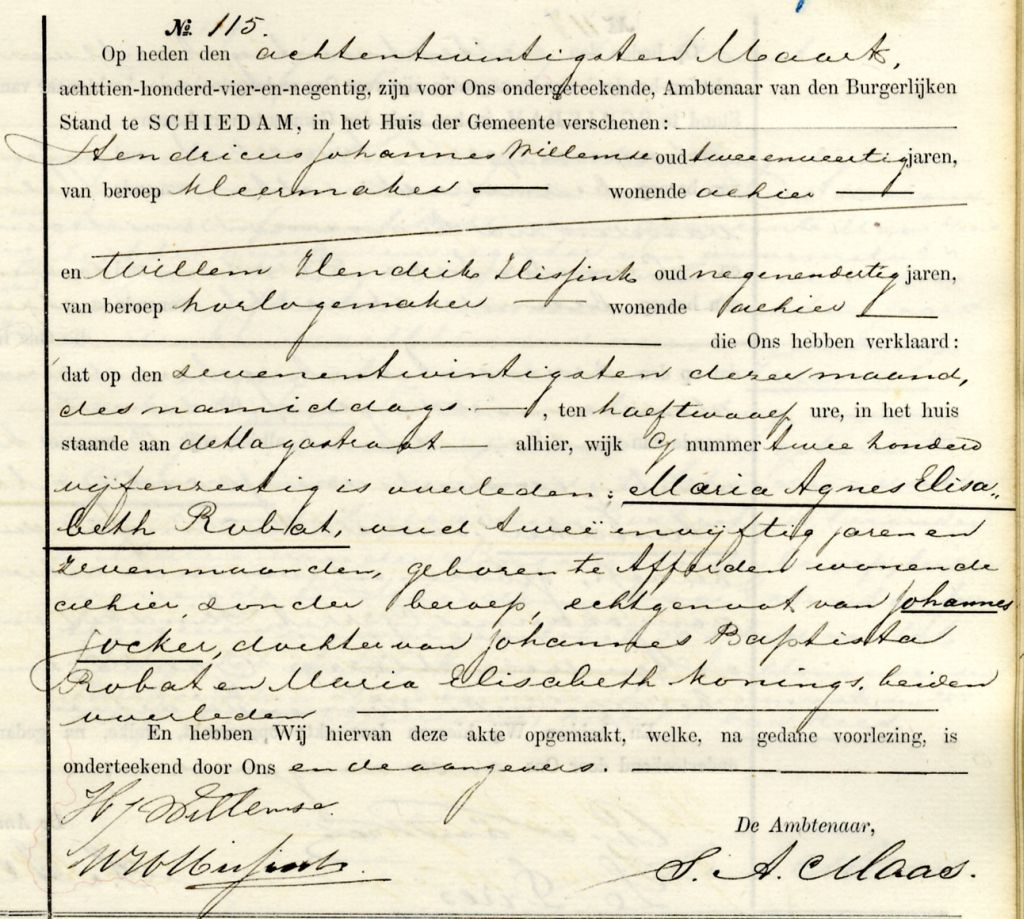 № 115.
Op heden den achtentwintigsten Maart,
achttien-honderd-vier-en-negentig, zijn voor Ons ondergeteekende, Ambtenaar van den Burgerlijken
Stand te SCHIEDAM, in het Huis der Gemeente verschenen:
Hendricus Johannes Willemse oud tweeenveertig jaren,
van beroep kleermaker wonende alhier
en Willem Hendrik Hissink oud negenendertig jaren,
van beroep horlogemaker wonende alhier
die Ons hebben verklaard:
dat op den zevenentwintigsten dezer maand,
des namiddags, ten half twaalf ure, in het huis
staande aan de Hagastraat alhier, wijk nummer twee honderd
vijfenzestig is overleden: Maria Agnes Elisa„
beth Robat, oud tweeënvijftig jaren en
zevenmaanden, geboren te Afferden wonende
alhier, zonder beroep, echtgenoot van Johannes
Jocker, dochter van Johannes Baptista
Robat en Maria Elisabeth Konings, beiden
overleden
En hebben Wij hiervan deze akte opgemaakt, welke, na gedane voorlezing, is
onderteekend door Ons en de aangevers.
HJ Willemse
De Ambtenaar,
WH Hissink
S. A. Maas.